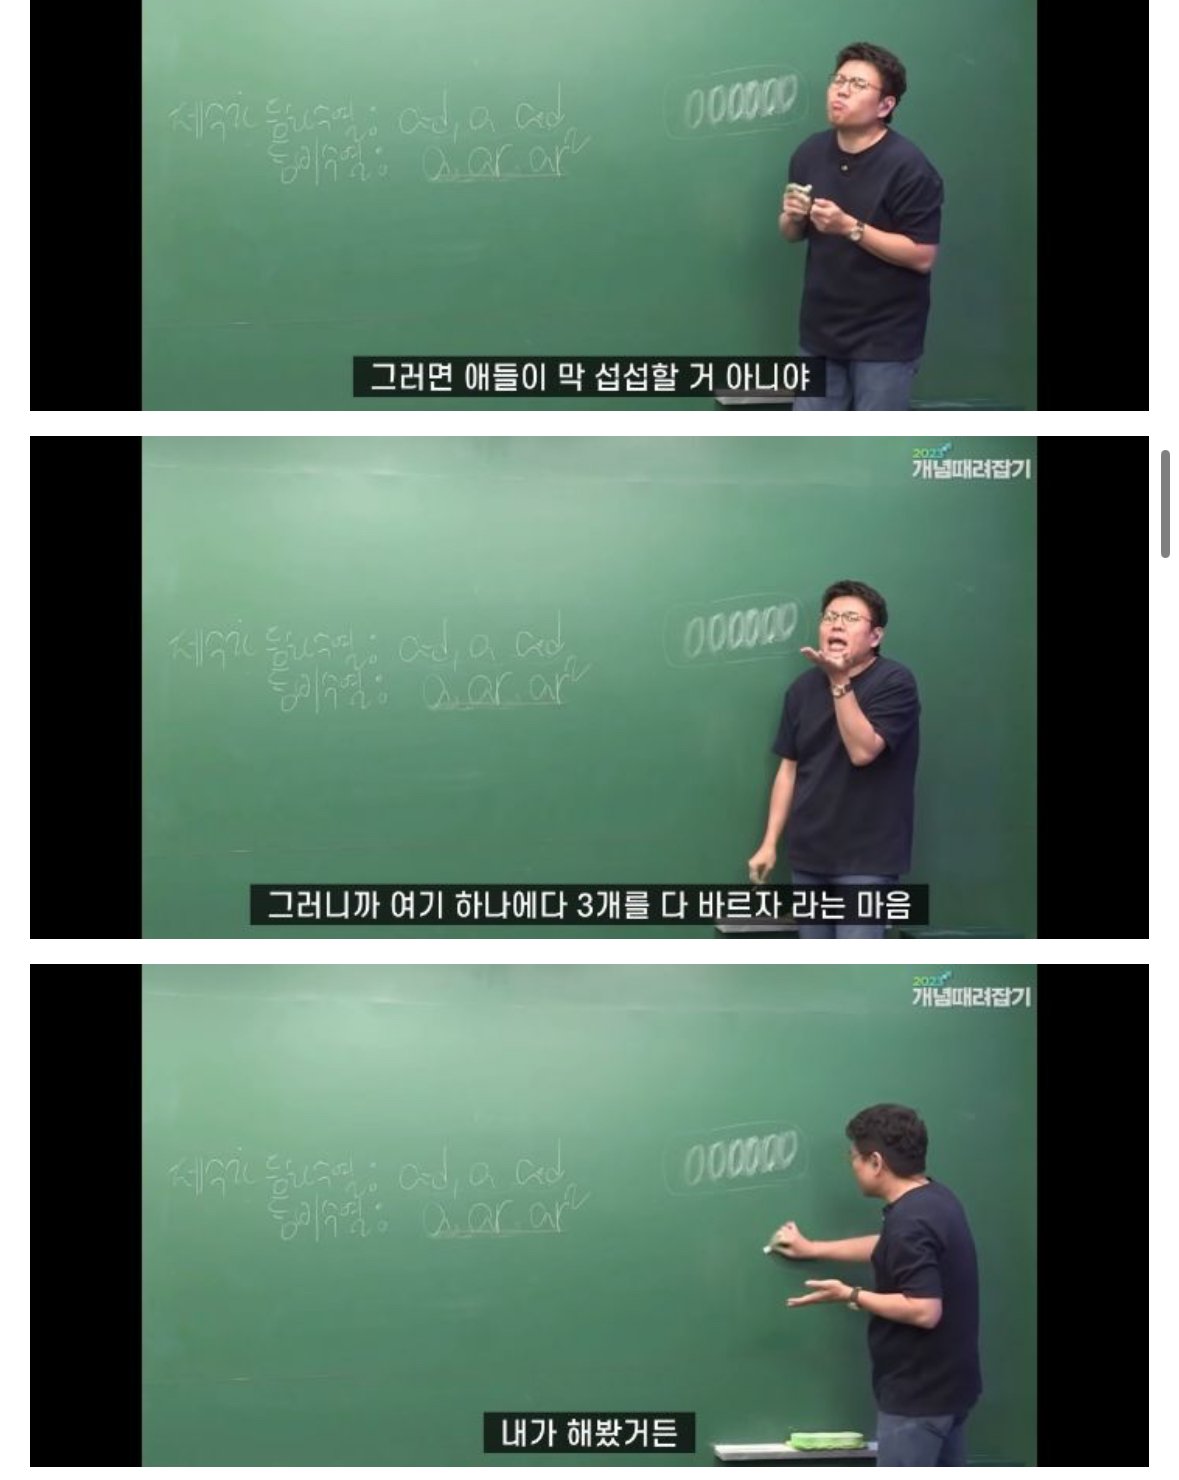 등차수열: a-d, a, a+d
등비수열: a, ar, ar²
000000
그러면 애들이 막 섭섭할 거 아니야
2023
개념때려잡기
등차수열: a-d, a, a+d
등비수열: a, ar, ar²
000000
그러니까 여기 하나에다 3개를 다 바르자 라는 마음
2023
개념때려잡기
등차수열: a-d, a, a+d
등비수열: a, ar, ar²
000000
내가 해봤거든